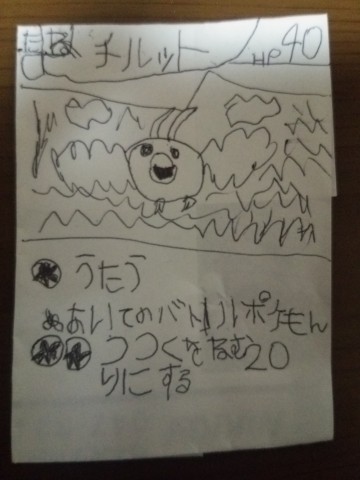 たね チルット HP40
うたう
あいてのバトルポケもん
つつくをねむ20
りにする